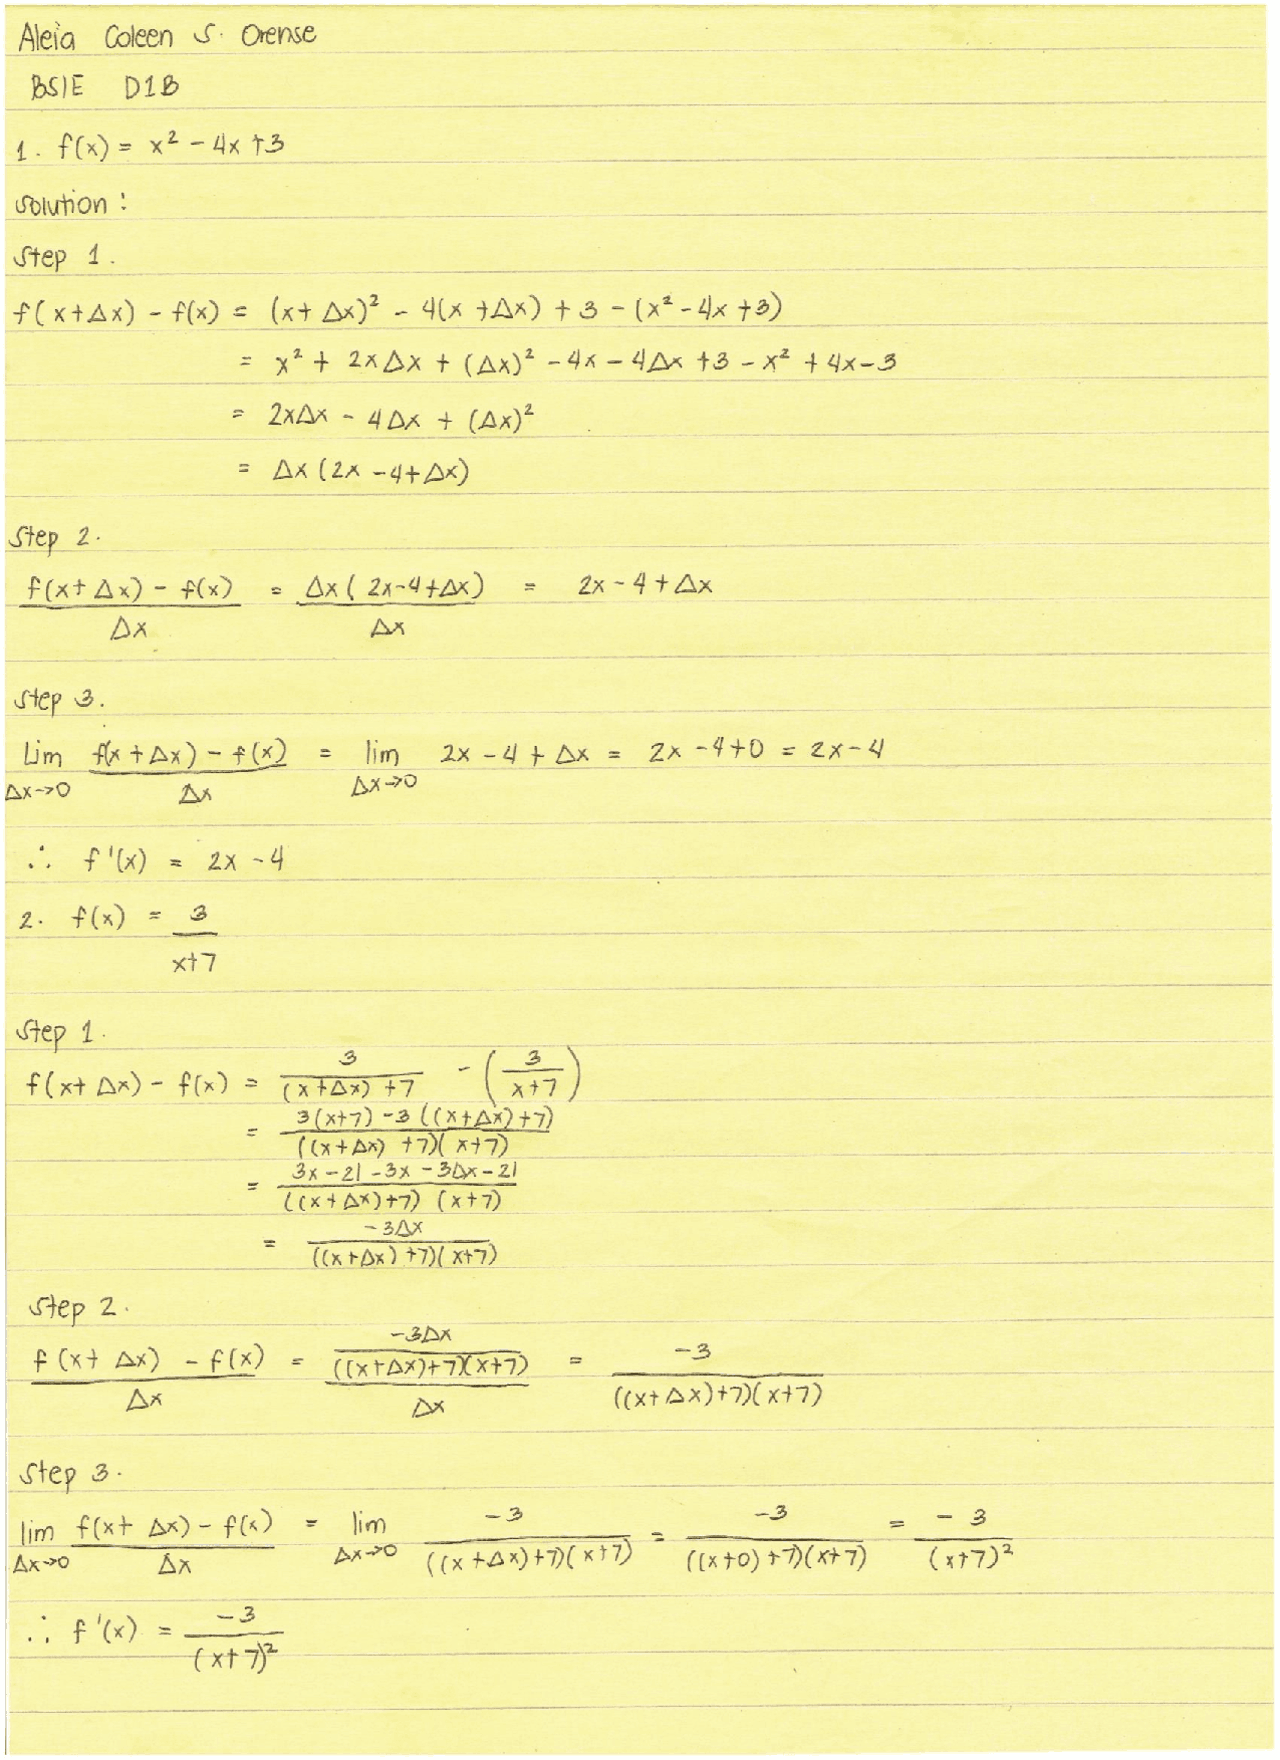 Aleia Coleen S. Orense
BSIE D1B
1. f(x) = x² - 4x +3
Solution:
Step 1.
f(x+Δx) - f(x) = (x+Δx)² - 4(x+Δx) + 3 - (x² - 4x +3)
= x² + 2xΔx + (Δx)² - 4x - 4Δx +3 - x² + 4x - 3
= 2xΔx - 4Δx + (Δx)²
= Δx (2x - 4 + Δx)
Step 2.
f(x+Δx) - f(x) / Δx = Δx (2x-4+Δx) / Δx = 2x - 4 + Δx
Step 3.
Lim Δx→0 f(x+Δx) - f(x) / Δx = lim Δx→0 2x - 4 + Δx = 2x - 4+0 = 2x - 4
∴ f'(x) = 2x - 4
2. f(x) = 3 / x+7
Step 1.
f(x+Δx) - f(x) = 3 / (x+Δx) +7 - (3 / x+7)
= 3(x+7) -3 ((x+Δx)+7) / ((x+Δx) +7)(x+7)
= 3x - 21 - 3x - 3Δx - 21 / ((x+Δx)+7) (x+7)
= -3Δx / ((x+Δx) +7)(x+7)
Step 2.
f(x+Δx) - f(x) / Δx = -3Δx / ((x+Δx)+7)(x+7) / Δx = -3 / ((x+Δx)+7)(x+7)
Step 3.
lim Δx→0 f(x+Δx) - f(x) / Δx = lim Δx→0 -3 / ((x+Δx)+7)(x+7) = -3 / ((x+0)+7)(x+7) = -3 / (x+7)²
∴ f'(x) = -3 / (x+7)²